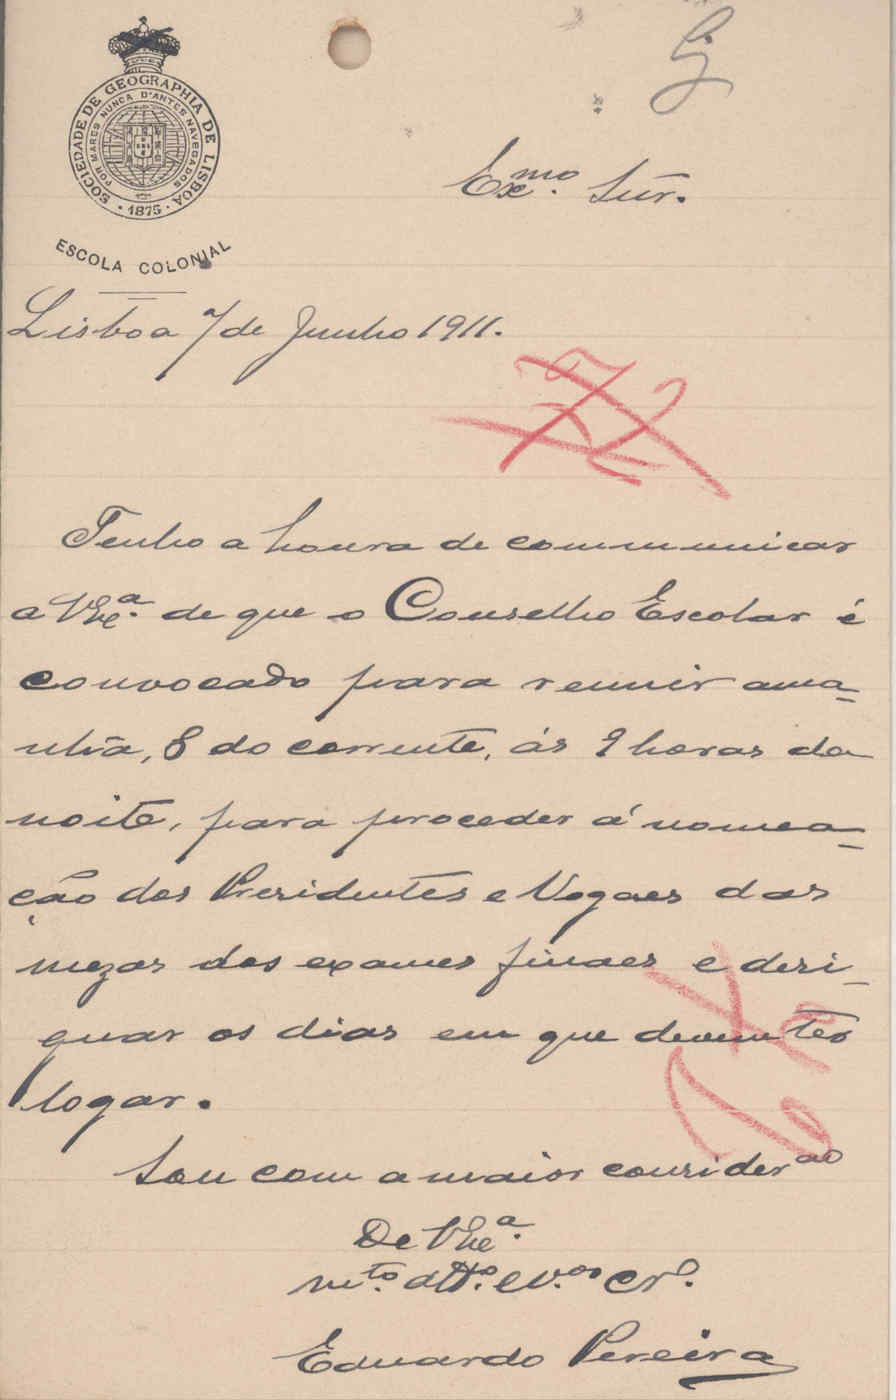 SOCIEDADE DE GEOGRAPHIA DE LISBOA
POR MARES NUNCA D'ANTES NAVEGADOS
· 1875 ·
ESCOLA COLONIAL
Ex.mo Snr.
Lisboa 7 de Junho 1911.
Tenho a honra de communicar
a V Ex.a de que o Conselho Escolar é
convocado para reunir ama-
nhã, 8 do corrente, ás 9 horas da
noite, para proceder á nomea-
ção dos Presidentes e Vogaes das
mezas dos exames finaes e desi-
gnar os dias em que devem ter
logar.
Sou com a maior considerao
De V Ex.a
m.to att.o e v.or cr.o
Eduardo Pereira